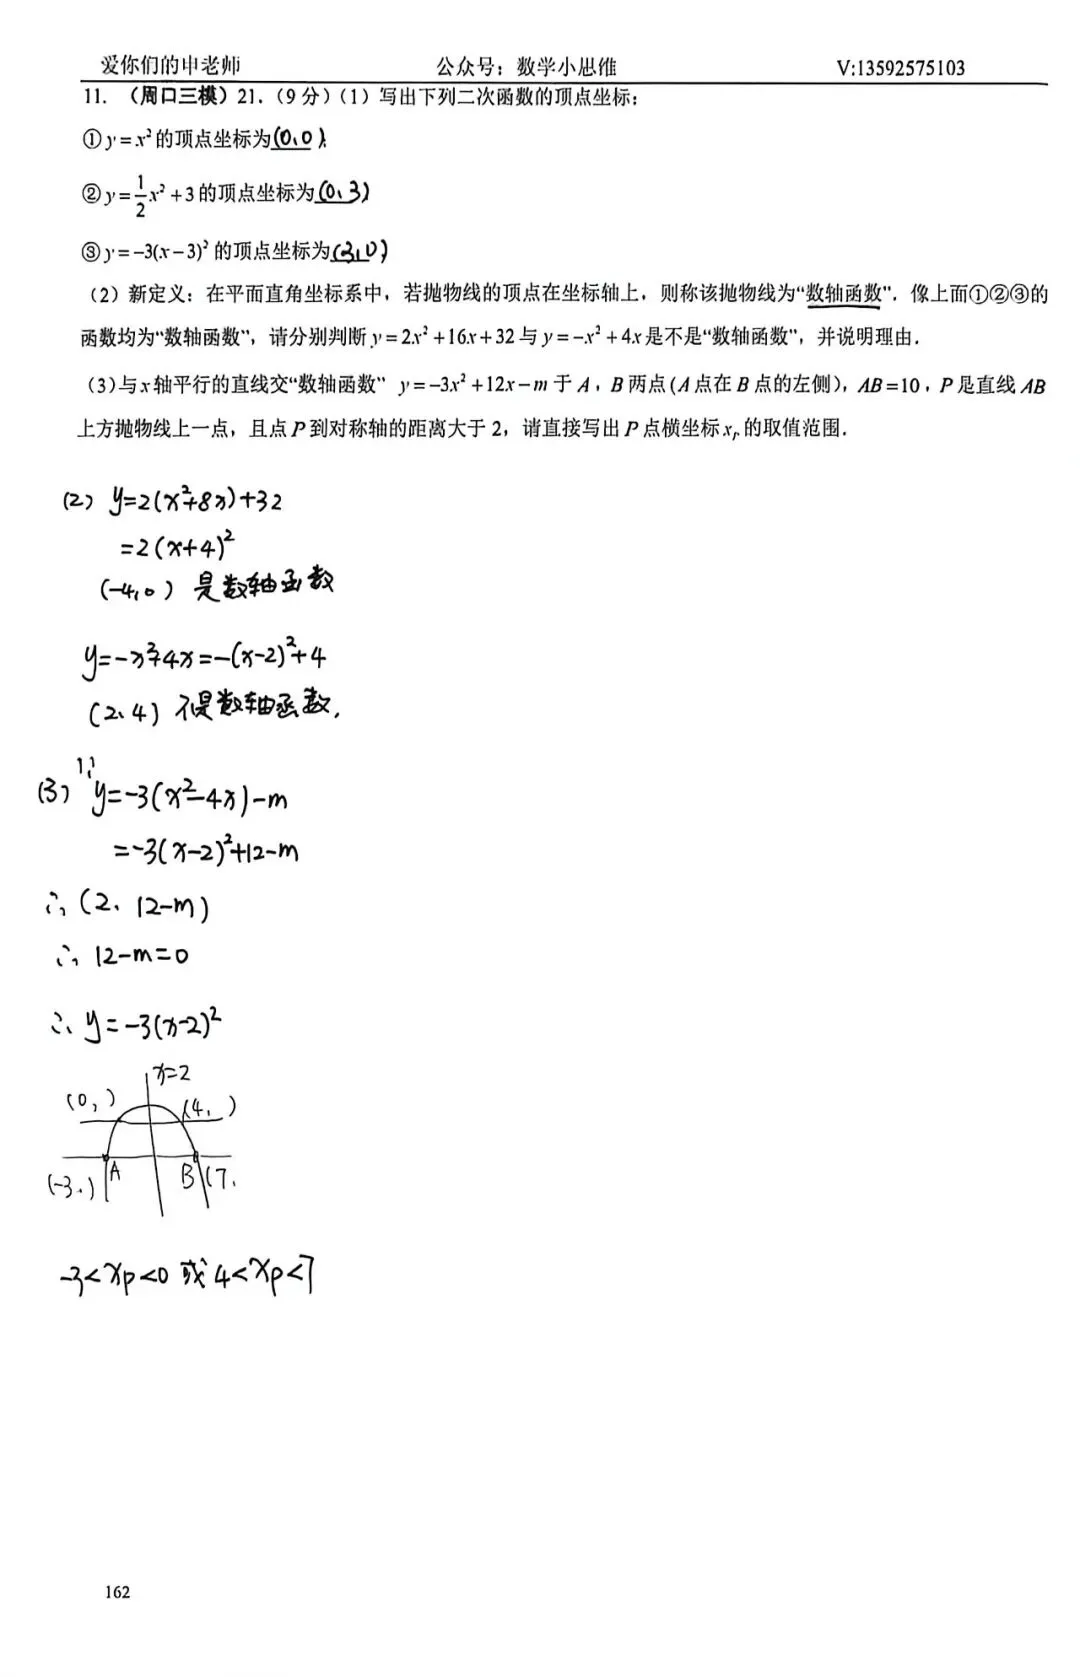 爱你们的申老师 公众号：数学小思维 V:13592575103
11. （周口三模）21.（9 分）（1）写出下列二次函数的顶点坐标：
①y=x²的顶点坐标为(0、0).
②y=1/2x²+3的顶点坐标为(0、3)
③y=-3(x-3)²的顶点坐标为(3,0)
（2）新定义：在平面直角坐标系中，若抛物线的顶点在坐标轴上，则称该抛物线为“数轴函数”．像上面①②③的
函数均为“数轴函数”，请分别判断y=2x²+16x+32与y=-x²+4x是不是“数轴函数”，并说明理由．
（3）与x轴平行的直线交“数轴函数” y=-3x²+12x-m于A，B两点（A点在B点的左侧），AB=10，P是直线AB
上方抛物线上一点，且点P到对称轴的距离大于2，请直接写出P点横坐标xₚ的取值范围．
(2) y=2(x²+8x)+32
=2(x+4)²
(-4,0) 是数轴函数
y=-x²+4x=-(x-2)²+4
(2、4) 不是数轴函数.
(3) ∵ y=-3(x²-4x)-m
=-3(x-2)²+12-m
∴ (2、12-m)
∴ 12-m=0
∴ y=-3(x-2)²
x=2
(0, ) (4, )
(-3, ) A B (7,
-3<xp<0 或 4<xp<7
162